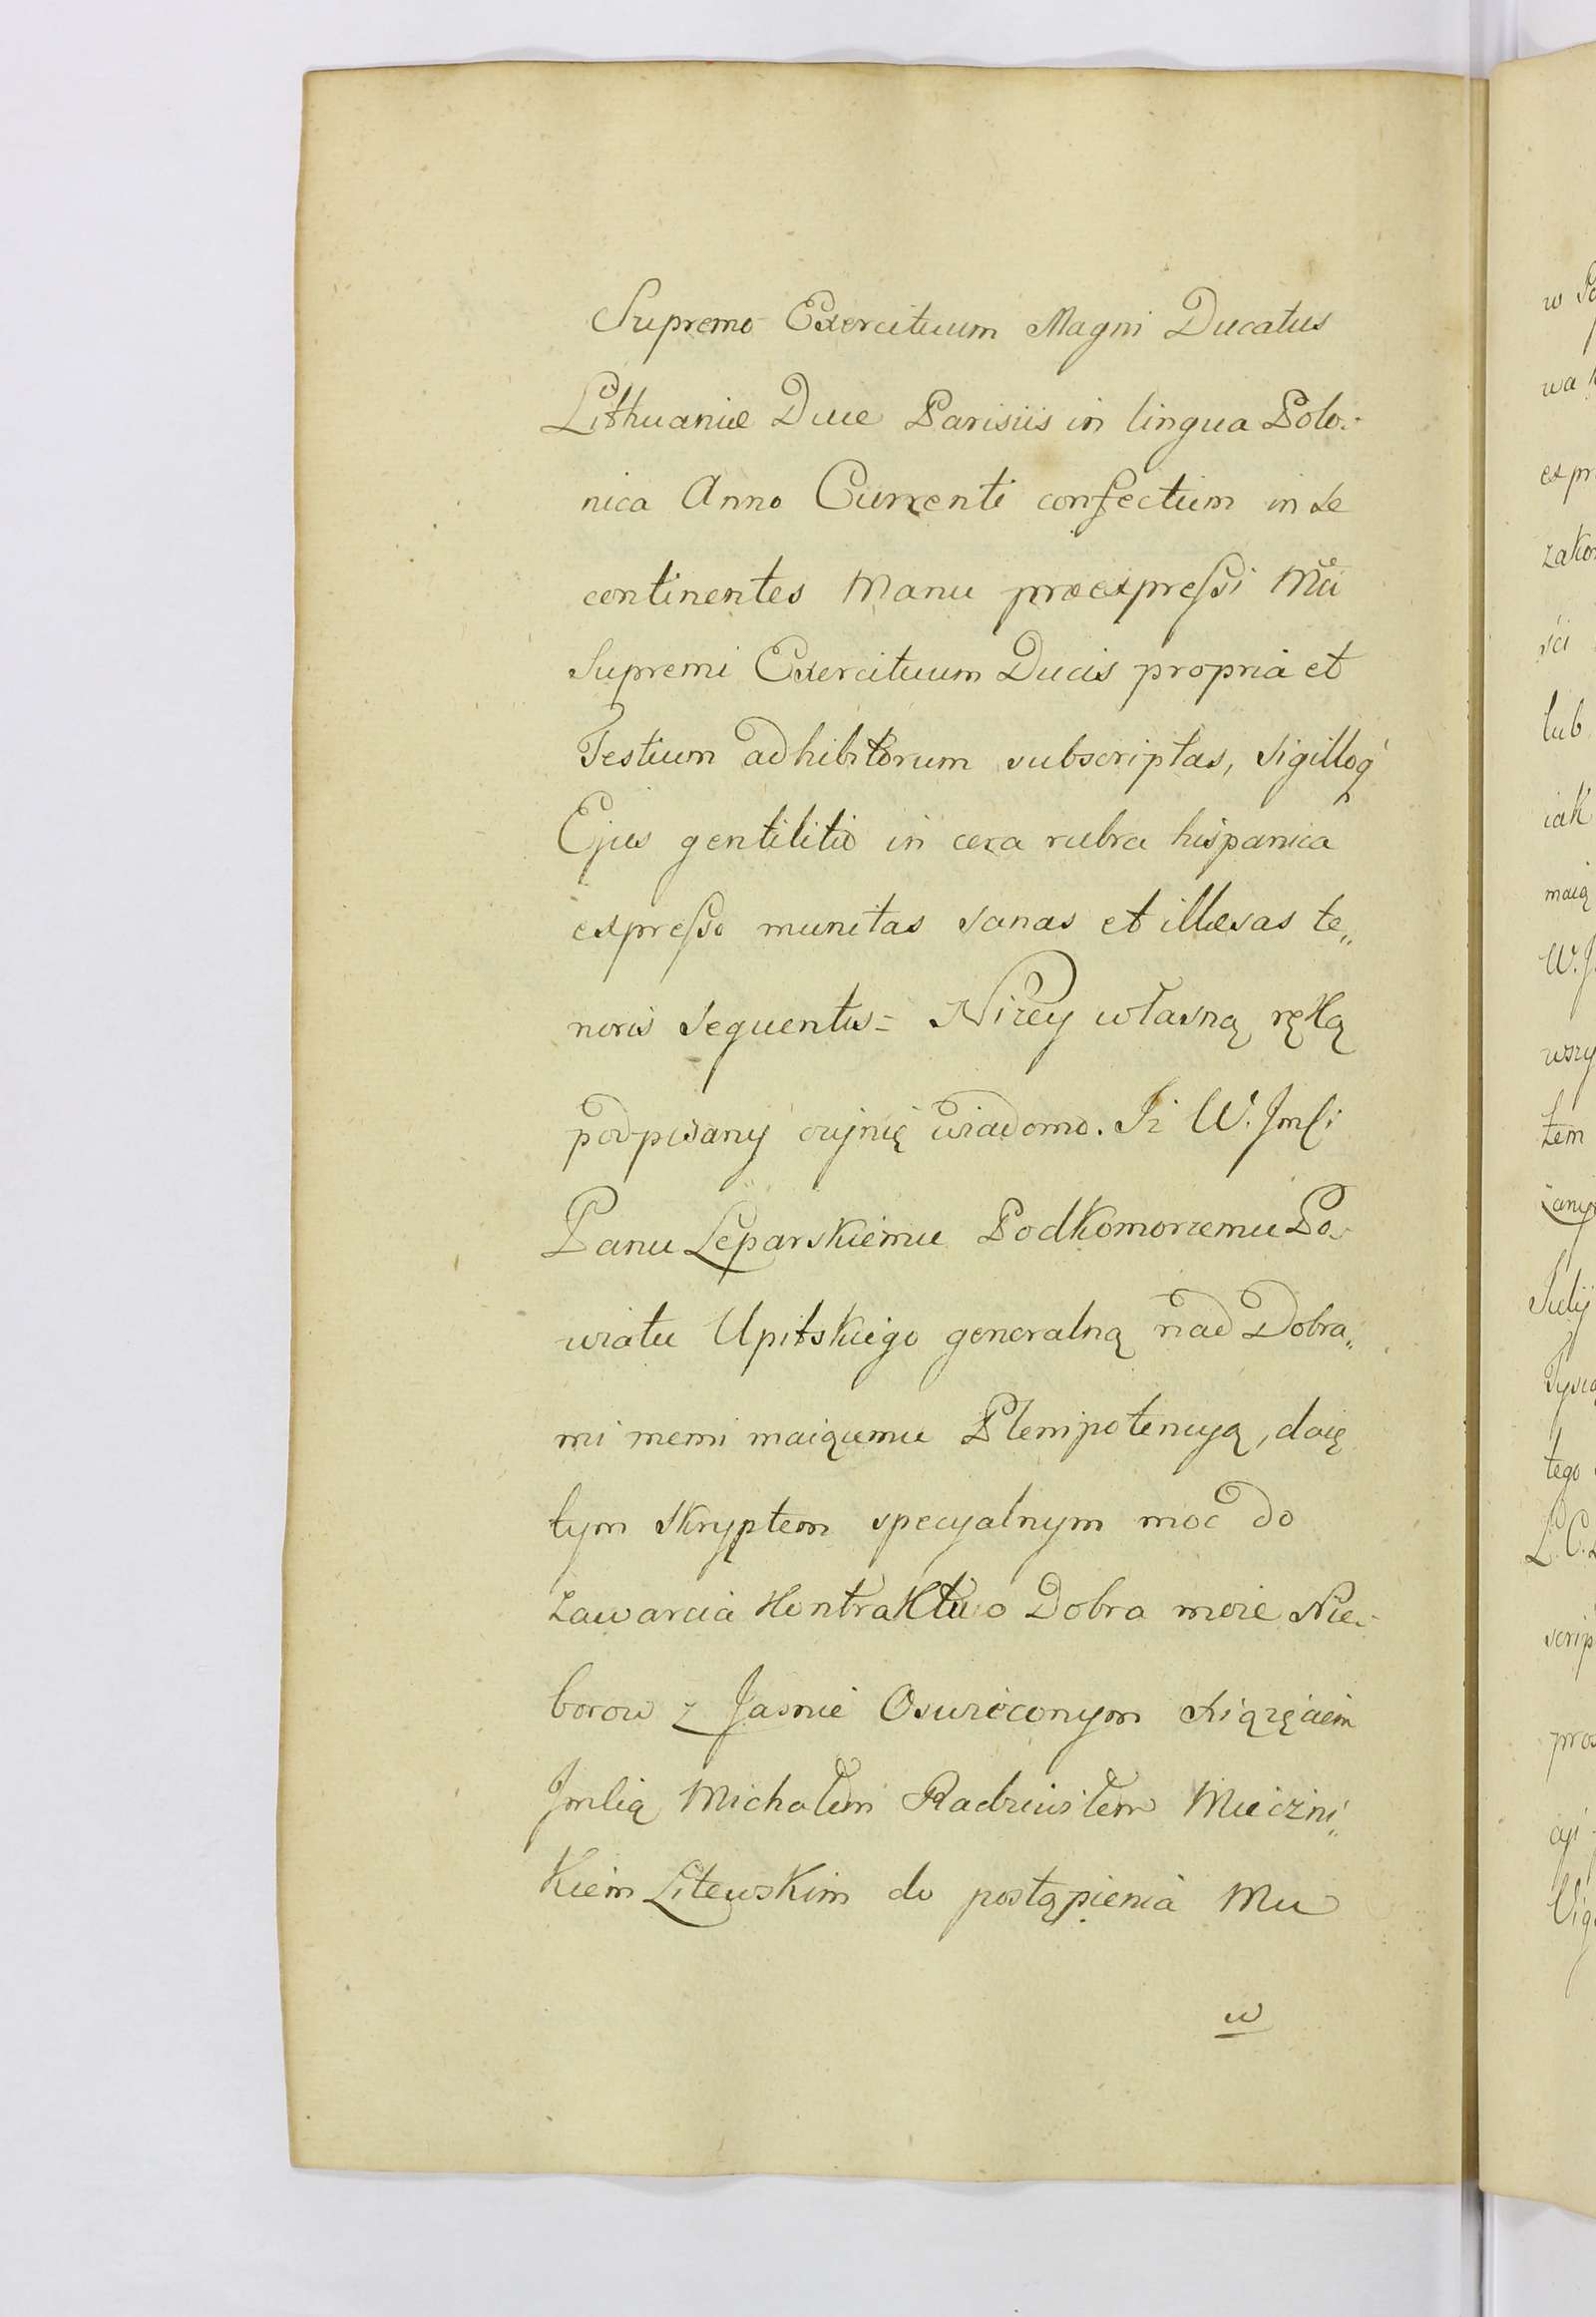 Supremo Exercituum Magni Ducatus
Lithuaniæ Duce Parisiis in lingua Polo-
nica Anno Currenti confectum in se
continentes Manu præexpreſsi Mci
Supremi Exercituum Ducis propria et
Testium adhibitorum subscriptas, sigilloq́
Ejus gentilitio in cera rubra hispanica
expreſso munitas sanas et illæsas te„
noris sequentis= Niżey własną ręką
podpisany czynię wiadomo. Iż W. Jmſci
Panu Leparskiemu Podkomorzemu Po-
wiatu Upitskiego generalną nad Dobra„
mi memi maiącemu Plenipotencyą, daię
tym skryptem specyalnym moc do
zawarcia Kontraktu o Dobra moie Nie-
borow z Jasnie Oswieconym Xiążęciem
Jmścią Michałem Radziwiłem Mieczni„
kiem Litewskim do postąpienia Mu
w
w Po
wa
expr
zakon
ści
lub
iak
maią
W. J
wszy
tem
żany
July
Tysią
tego
L. C.
scrip
pros
cyi
Vig